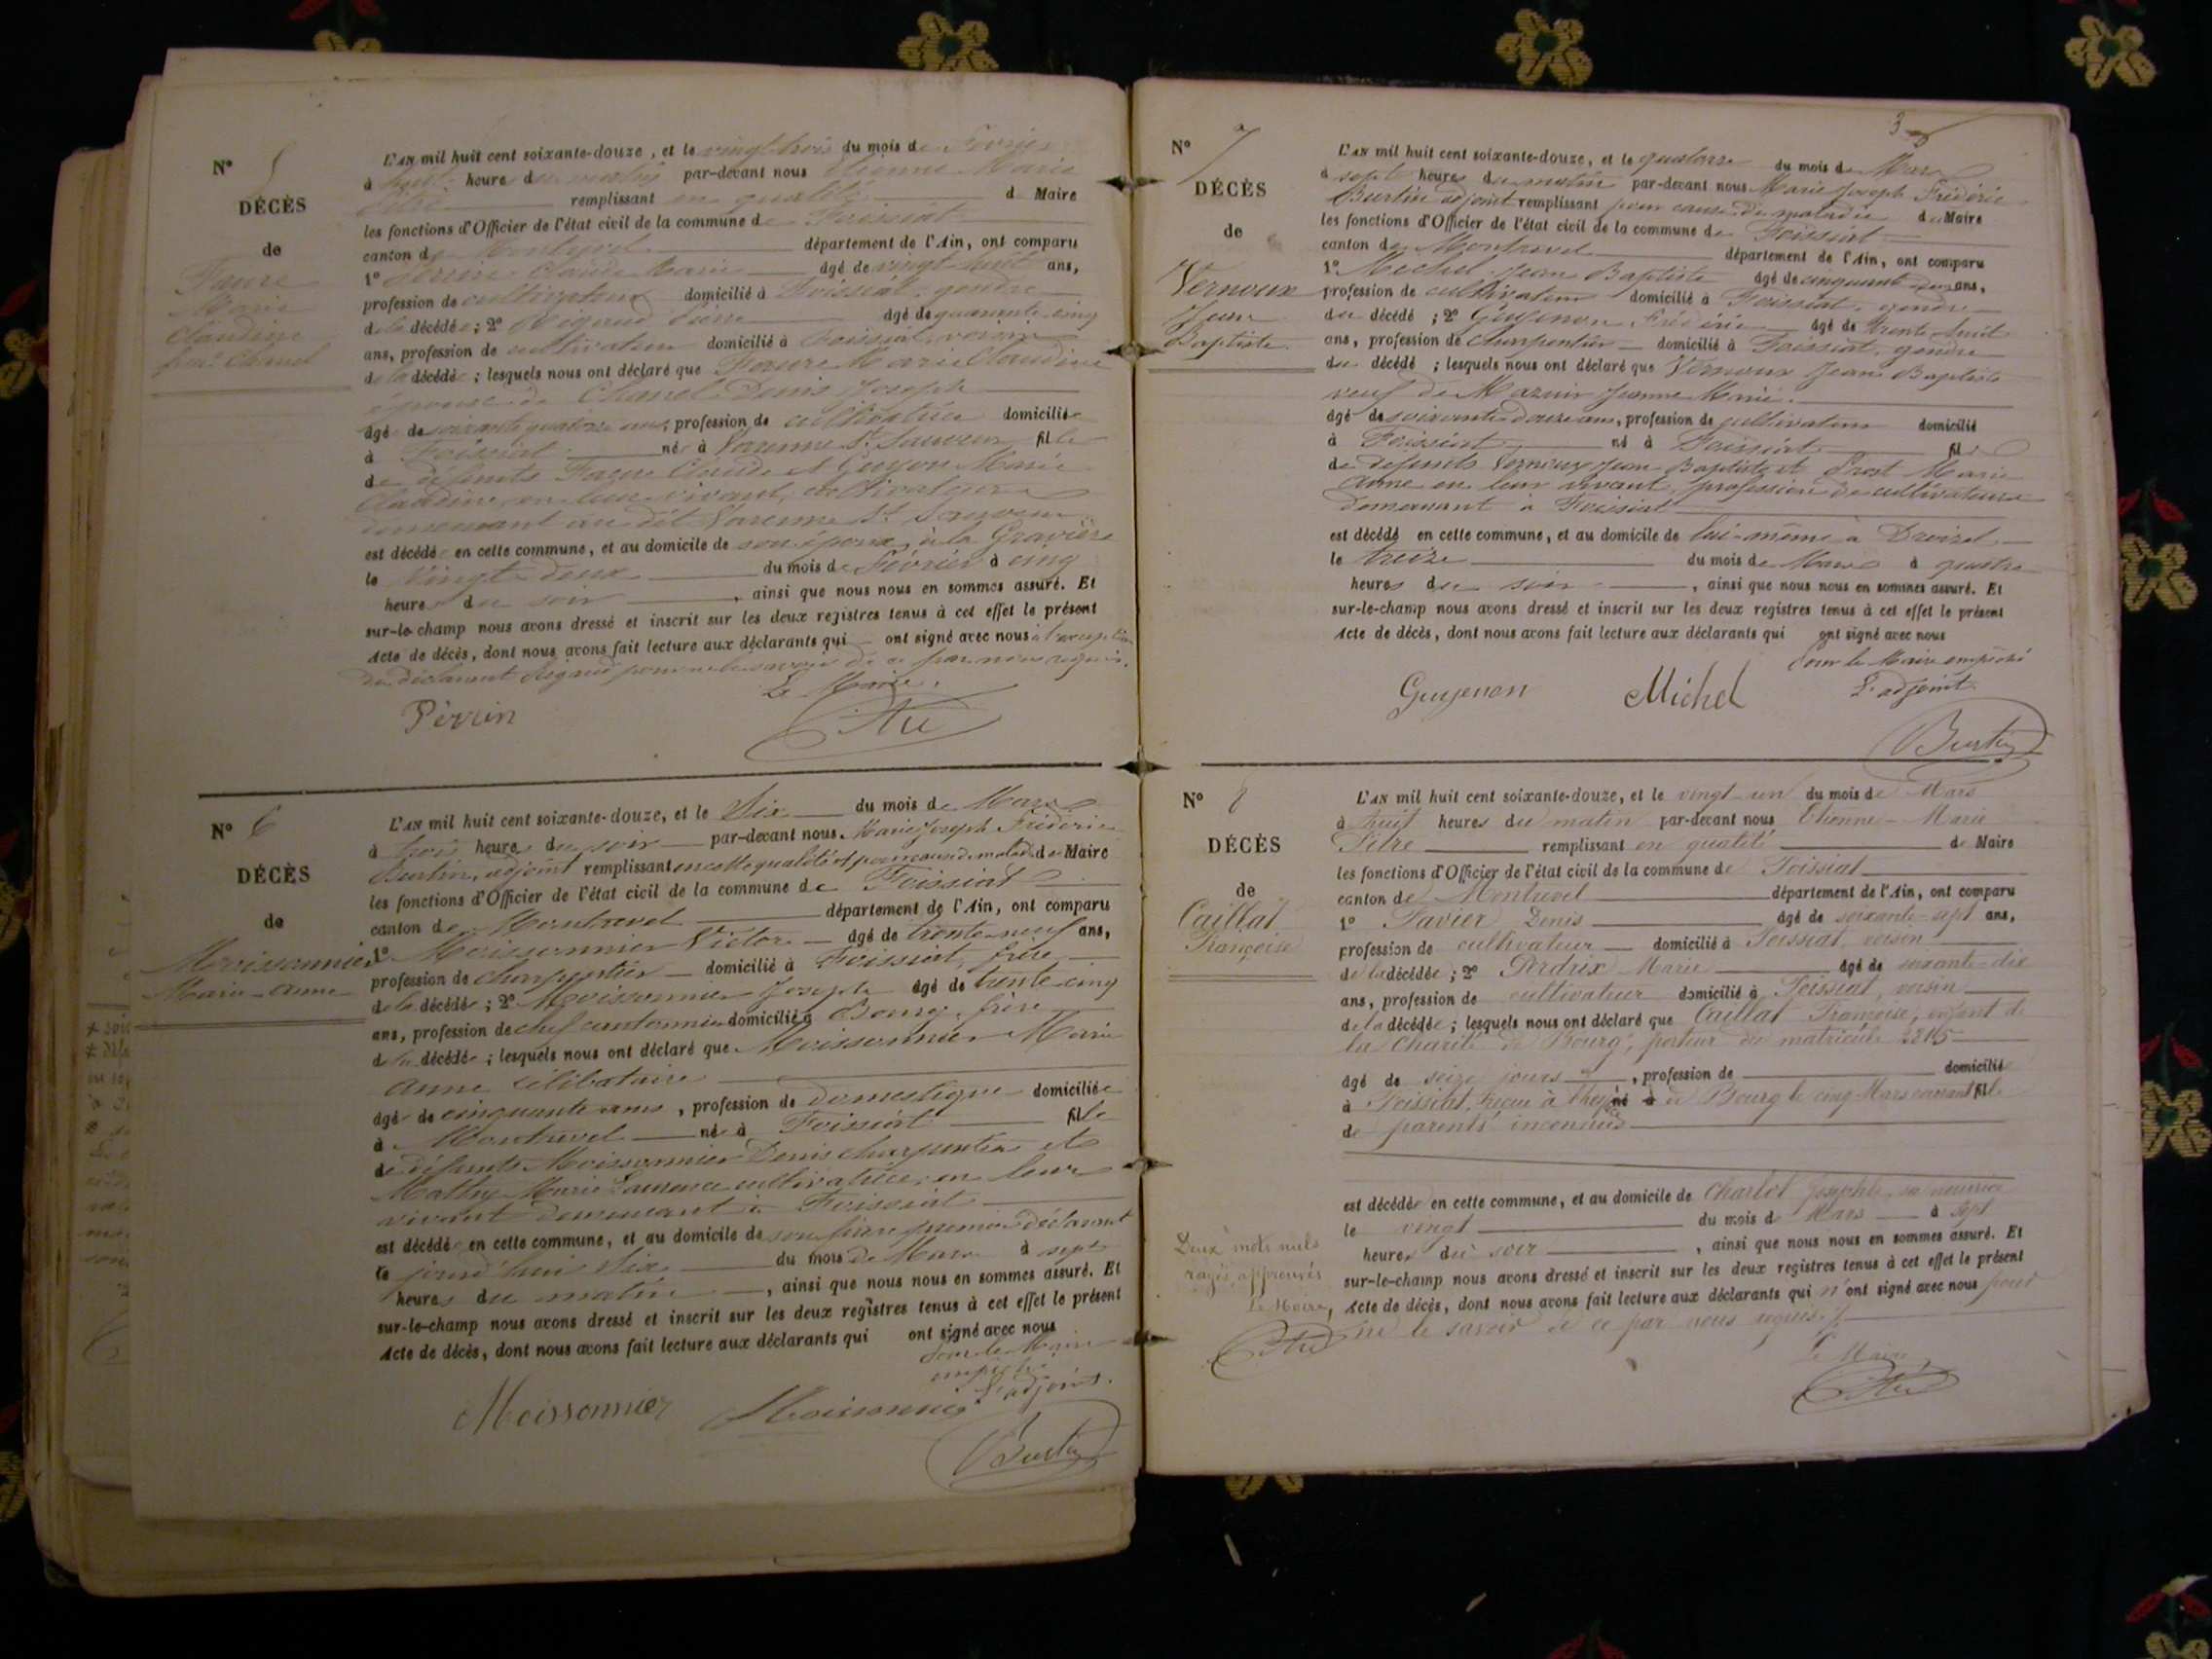 N° 5
DÉCÈS
de
Faure
Marie
Claudine
fem. Chanel
L'AN mil huit cent soixante-douze, et le vingt trois du mois de Février
à huit heures du matin par-devant nous Etienne Marie
remplissant en qualité de Maire
les fonctions d'Officier de l'état civil de la commune de Foissiat
canton de Montrevel département de l'Ain, ont comparu
1° Perrin Claude Marie âgé de vingt-huit ans,
profession de cultivateur domicilié à Foissiat, gendre
de la décédée ; 2° Rigaud Pierre âgé de quarante cinq
ans, profession de cultivateur domicilié à Foissiat, voisin
de la décédée ; lesquels nous ont déclaré que Faure Marie Claudine
épouse de Chanel Denis Joseph
âgée de soixante quatorze ans, profession de cultivatrice domiciliée
à Foissiat née à Varenne St Sauveur fille
de défunts Faure Claude et Guyon Marie
Claudine, en leur vivant, cultivateurs
demeurant au dit Varenne St Sauveur
est décédée en cette commune, et au domicile de son époux, à la Gravière
le Vingt-deux du mois de Février à cinq
heures du soir, ainsi que nous nous en sommes assuré. Et
sur-le-champ nous avons dressé et inscrit sur les deux registres tenus à cet effet le présent
Acte de décès, dont nous avons fait lecture aux déclarants qui ont signé avec nous à l'exception
du déclarant Rigaud pour ne le savoir de ce par nous requis.
Le Maire.
Perrin
N° 6
DÉCÈS
de
Moissonnier
Marie-Anne
L'AN mil huit cent soixante-douze, et le Six du mois de Mars
à trois heures du soir par-devant nous Marie Joseph Frédéric
Burtin, adjoint remplissant en cette qualité et pour cause de maladie de Maire
les fonctions d'Officier de l'état civil de la commune de Foissiat
canton de Montrevel département de l'Ain, ont comparu
1° Moissonnier Victor âgé de trente-neuf ans,
profession de charpentier domicilié à Foissiat, frère
de la décédée ; 2° Moissonnier Joseph âgé de trente cinq
ans, profession de chef cantonnier domicilié à Bourg, frère
de la décédée ; lesquels nous ont déclaré que Moissonnier Marie
Anne célibataire
âgée de cinquante ans, profession de domestique domiciliée
à Montrevel née à Foissiat fille
de défunts Moissonnier Denis charpentier et
Mathy Marie Laurence cultivatrice, en leur
vivant demeurant à Foissiat
est décédée en cette commune, et au domicile de son frère premier déclarant
le jourd'hui Six du mois de Mars à sept
heures du matin, ainsi que nous nous en sommes assuré. Et
sur-le-champ nous avons dressé et inscrit sur les deux registres tenus à cet effet le présent
Acte de décès, dont nous avons fait lecture aux déclarants qui ont signé avec nous
Pour le Maire
empêché
L'adjoint.
Moissonnier Moissonnier
Burtin
3
N° 7
DÉCÈS
de
Vernoux
Jean
Baptiste
L'AN mil huit cent soixante-douze, et le quatorze du mois de Mars
à sept heures du matin par-devant nous Marie Joseph Frédéric
Burtin adjoint remplissant pour cause de maladie du Maire
les fonctions d'Officier de l'état civil de la commune de Foissiat
canton de Montrevel département de l'Ain, ont comparu
1° Michel Jean Baptiste âgé de cinquante deux ans,
profession de cultivateur domicilié à Foissiat, gendre
du décédé ; 2° Guyenon Frédéric âgé de trente huit
ans, profession de charpentier domicilié à Foissiat, gendre
du décédé ; lesquels nous ont déclaré que Vernoux Jean Baptiste
veuf de Mazuir Jeanne Marie
âgé de soixante douze ans, profession de cultivateur domicilié
à Foissiat né à Foissiat fils
de défunts Vernoux Jean Baptiste et Prost Marie
Anne en leur vivant, profession de cultivateurs
demeurant à Foissiat
est décédé en cette commune, et au domicile de lui-même à
le treize du mois de Mars à quatre
heures du soir, ainsi que nous nous en sommes assuré. Et
sur-le-champ nous avons dressé et inscrit sur les deux registres tenus à cet effet le présent
Acte de décès, dont nous avons fait lecture aux déclarants qui ont signé avec nous
Pour le Maire empêché
L'adjoint
Guyenon Michel
Burtin
N° 8
DÉCÈS
de
Caillat
Françoise
L'AN mil huit cent soixante-douze, et le vingt-un du mois de Mars
à huit heures du matin par-devant nous Etienne-Marie
remplissant en qualité de Maire
les fonctions d'Officier de l'état civil de la commune de Foissiat
canton de Montrevel département de l'Ain, ont comparu
1° Favier Denis âgé de soixante-sept ans,
profession de cultivateur domicilié à Foissiat, voisin
de la décédée ; 2° Perdrix Marie âgé de soixante-dix
ans, profession de cultivateur domicilié à Foissiat, voisin
de la décédée ; lesquels nous ont déclaré que Caillat Françoise, enfant de
la Charité de Bourg, porteur du matricule
âgé de seize jours, profession de domicilié
à Foissiat, née à de Bourg le cinq Mars courant fille
de parents inconnus
est décédée en cette commune, et au domicile de Charlot Josephte, sa nourrice
le vingt du mois de Mars à sept
heures du soir, ainsi que nous nous en sommes assuré. Et
sur-le-champ nous avons dressé et inscrit sur les deux registres tenus à cet effet le présent
Acte de décès, dont nous avons fait lecture aux déclarants qui n'ont signé avec nous pour
ne le savoir de ce par nous requis.
Deux mots nuls
rayés approuvés
Le Maire,
Le Maire